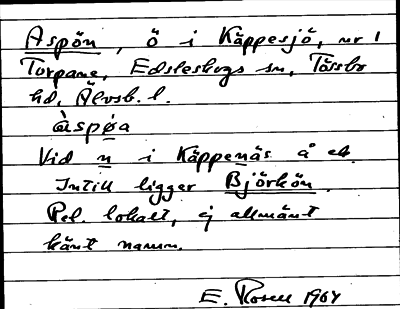 Aspön, ö i Käppesjö, nr 1
Torpane, Edsleskogs sn, Tössbo
hd, Älvsb. l.
àspǿa
Vid n i Käppenäs å ek.
Intill ligger Björkön.
Rel. lokalt, ej allmänt
känt namn.
E. Rosell 1964